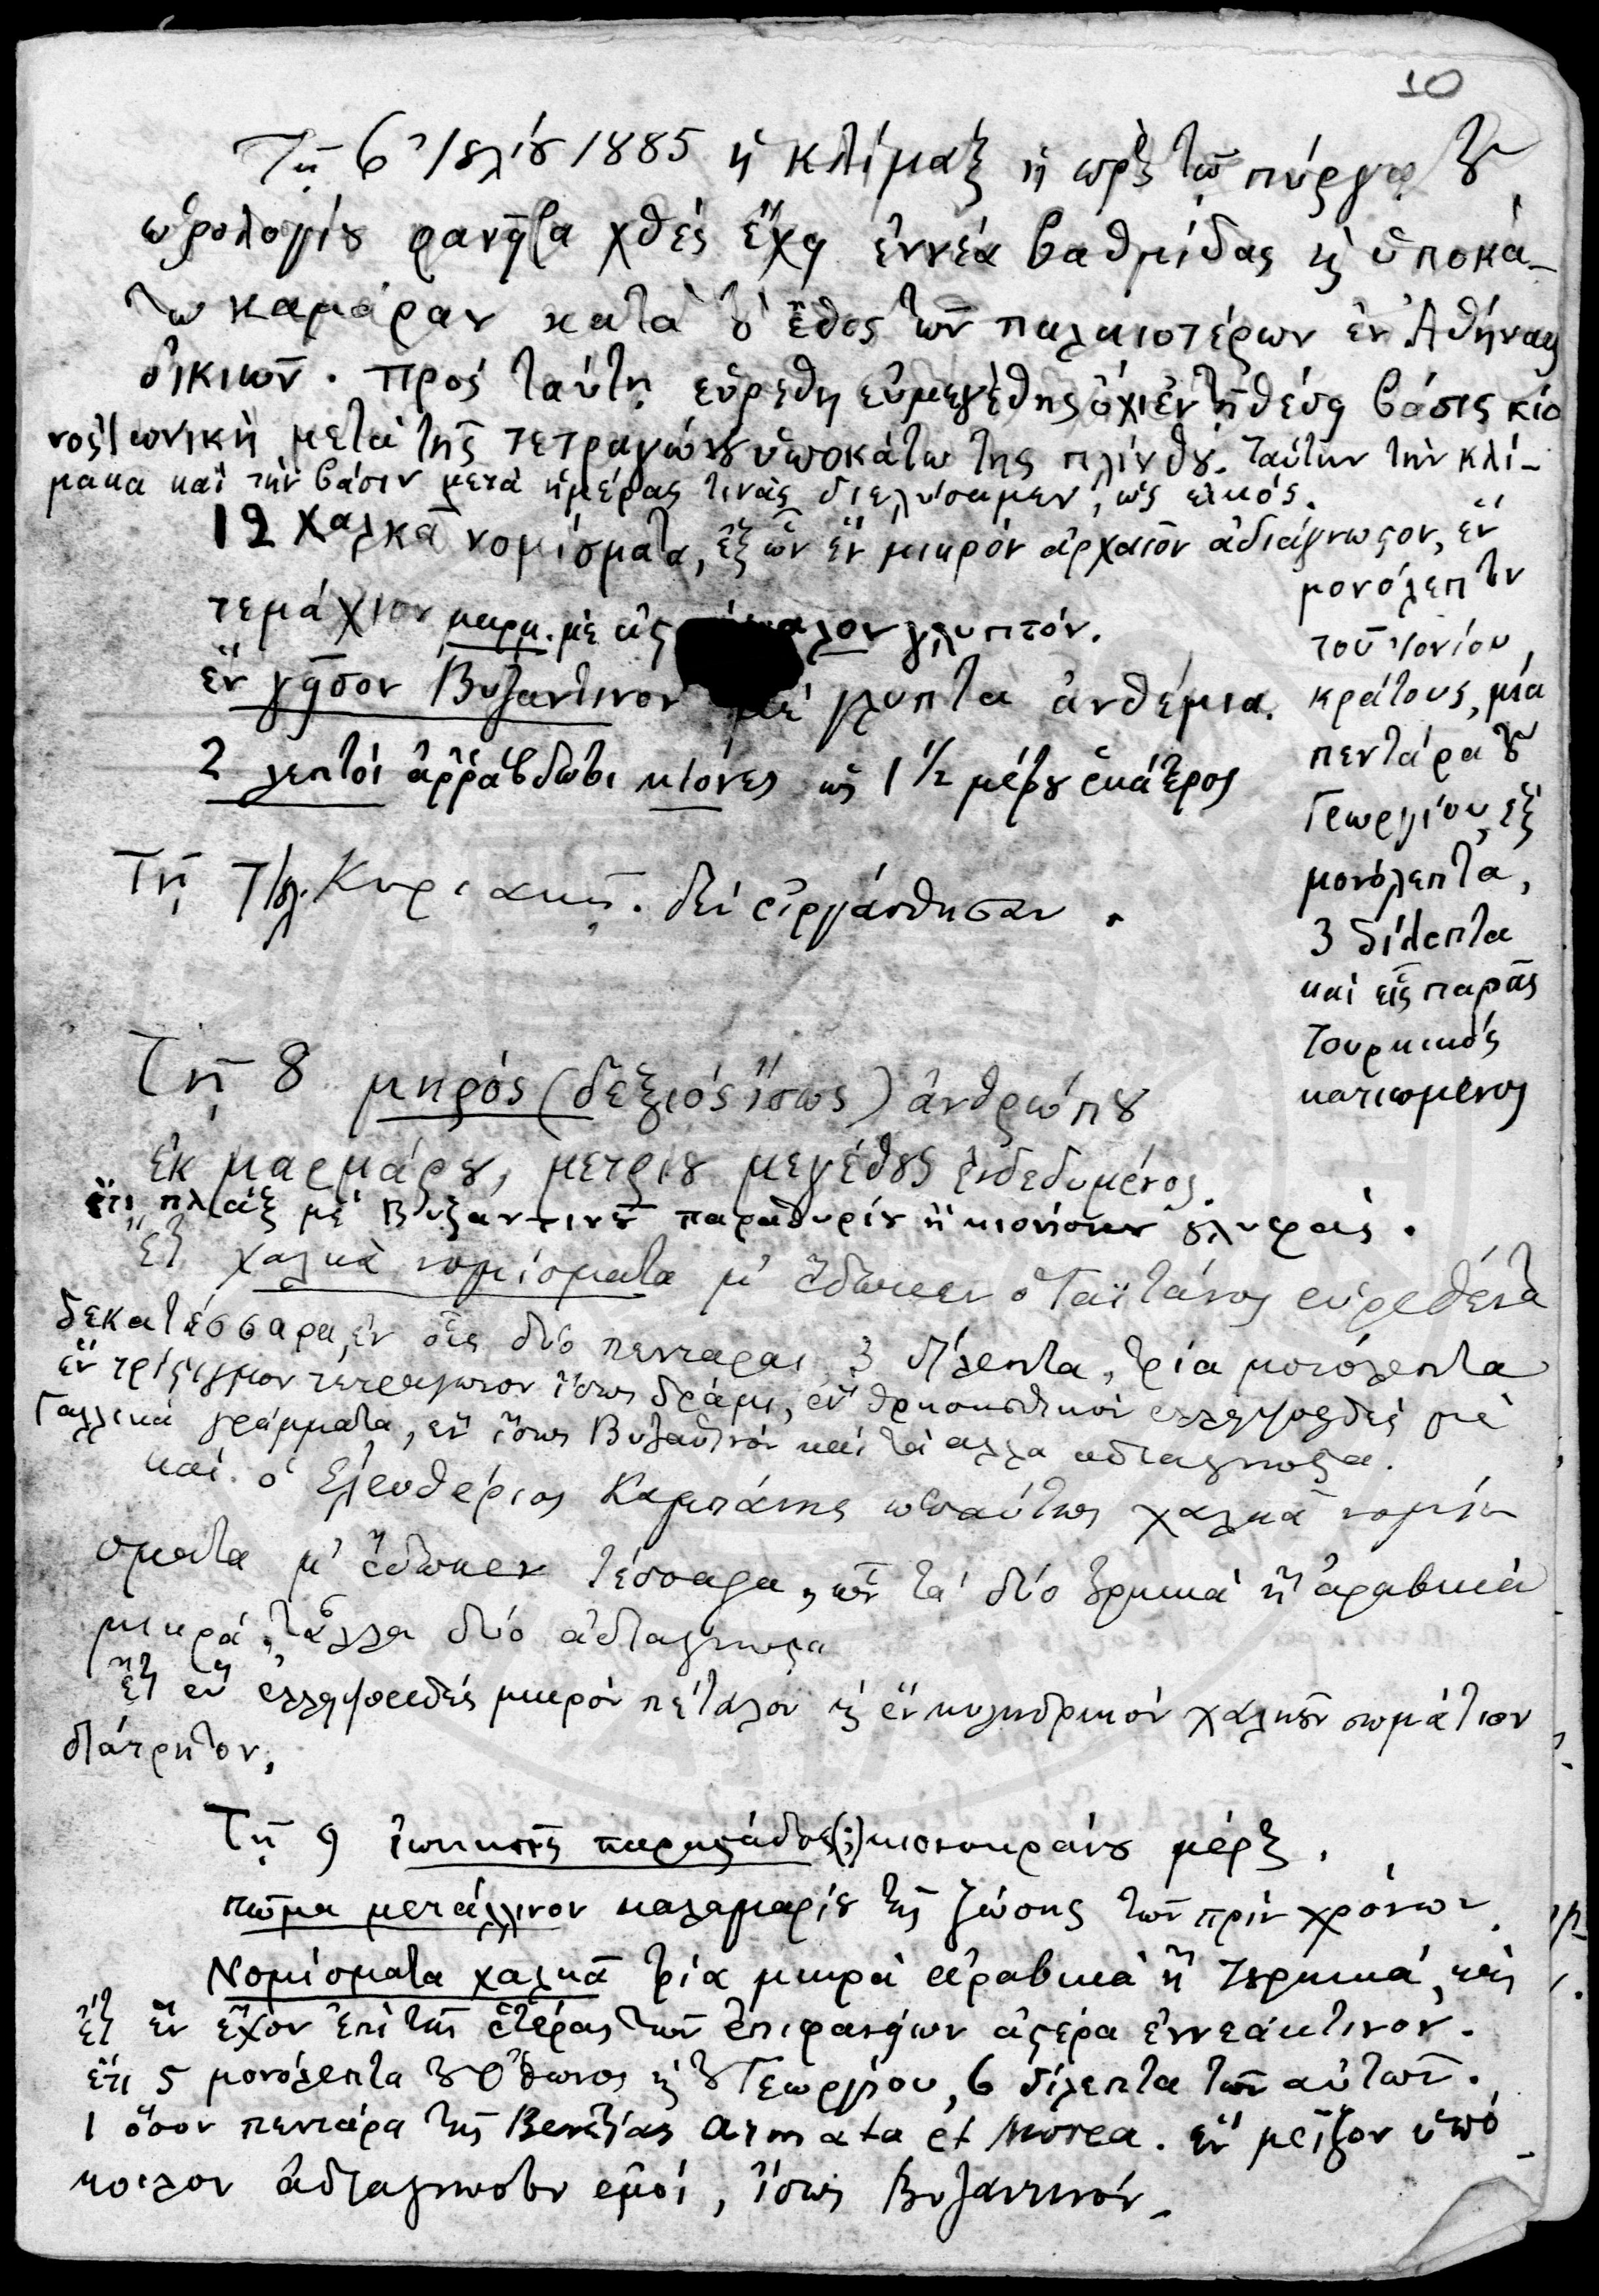 10
Τῇ 6 Ἰουλίου 1885 ἡ κλίμαξ ἡ πρὸς τῷ πύργῳ τοῦ
ὡρολογίου φανεῖσα χθὲς ἔχει ἐννέα βαθμίδας κ ὑποκά-
τω καμάραν κατὰ τὸ ἔθος τῶν παλαιοτέρων ἐν Ἀθήναις
οἰκιῶν. Πρὸς ταύτῃ εὑρέθη εὐμεγέθης ὄχι ἐν τῇ θέσει βάσις κίο
νος Ἰωνικὴ μετὰ τῆς τετραγώνου ὑποκάτω της πλίνθου. ταύτην τὴν κλί-
μακα καὶ τὴν βάσιν μετὰ ἡμέρας τινὰς διελύσαμεν, ὡς εἰκός.
12 χαλκᾶ νομίσματα, ἐξ ὧν ἓν μικρὸν ἀρχαῖον ἀδιάγνωστον, ἓν
μονόλεπτον
τοῦ Ἰονίου
κράτους, μία
πεντάρα τοῦ
Γεωργίου, ἓξ
μονόλεπτα,
3 δίλεπτα
καὶ εἷς παρᾶς
Τουρκικὸς
κατιωμένος
τεμάχιον μαρμ. μὲ γλυπτόν.
ἓν γεῖσον Βυζαντινὸν μὲ γλυπτὰ ἀνθέμια.
2 λεπτοὶ ἀρράβδωτοι κίονες ὡς 1 1/2 μέτρου ἑκάτερος
Τῇ 7 Ἰουλ. Κυριακῇ. δὲν εἰργάσθησαν.
Τῇ 8 μηρός (δεξιὸς ἴσως) ἀνθρώπου
ἐκ μαρμάρου, μετρίου μεγέθους ἐνδεδυμένος.
ἔτι πλὰξ μὲ Βυζαντινοῦ παραθυρίου ἢ κιονίσκων γλυφάς.
ἔτι χαλκᾶ νομίσματα μ' ἔδωκεν ὁ Γαϊτάνος εὑρεθέντα
δεκατέσσαρα, ἐν οἷς δύο πενταραι, 3 δίλεπτα, τρία μονόλεπτα
ἓν τετράγωνον ἴσως δράμι, ἓν θρησκευτικὸν ἐλλειψοειδὲς μὲ
Γαλλικὰ γράμματα, ἓν ἴσως Βυζαντινὸν καὶ τὰ αλλα αδιαγνωστα.
καὶ ὁ Ἐλευθέριος Καμπάνης ὡσαύτως χαλκᾶ νομί
σματα μ' ἔδωκεν τέσσαρα, ὧν τὰ δύο τουρκικὰ ἢ ἀραβικὰ
μικρά, τἄλλα δύο ἀδιαγνωστα
ἔτι ἓν ἐλλειψοειδὲς μικρὸν πέταλον κ ἓν κυλινδρικὸν χαλκοῦν σωμάτιον
διάτρητον,
Τῇ 9 ἰωνικῆς παραστάδος (;) κιονοκράνου μέρος.
πῶμα μετάλλινον καλαμαρίου τῆς ζώσης τῶν πρὶν χρόνων
Νομίσματα χαλκᾶ τρία μικρὰ ἀραβικὰ ἢ τουρκικά,
ἔτι ἓν ἔχον ἐπὶ τῆς ἑτέρας τῶν ἐπιφανειῶν ἀστέρα ἐννεάκτινον.
ἔτι 5 μονόλεπτα τοῦ Ὄθωνος κ τοῦ Γεωργίου, 6 δίλεπτα τῶν αὐτῶν.
1 ὅσον πεντάρα τῆς Βενετίας Armata et Morea. ἓν μεῖζον ὑπό
κοιλον ἀδιαγνωστον ἐμοί, ἴσως Βυζαντινόν.